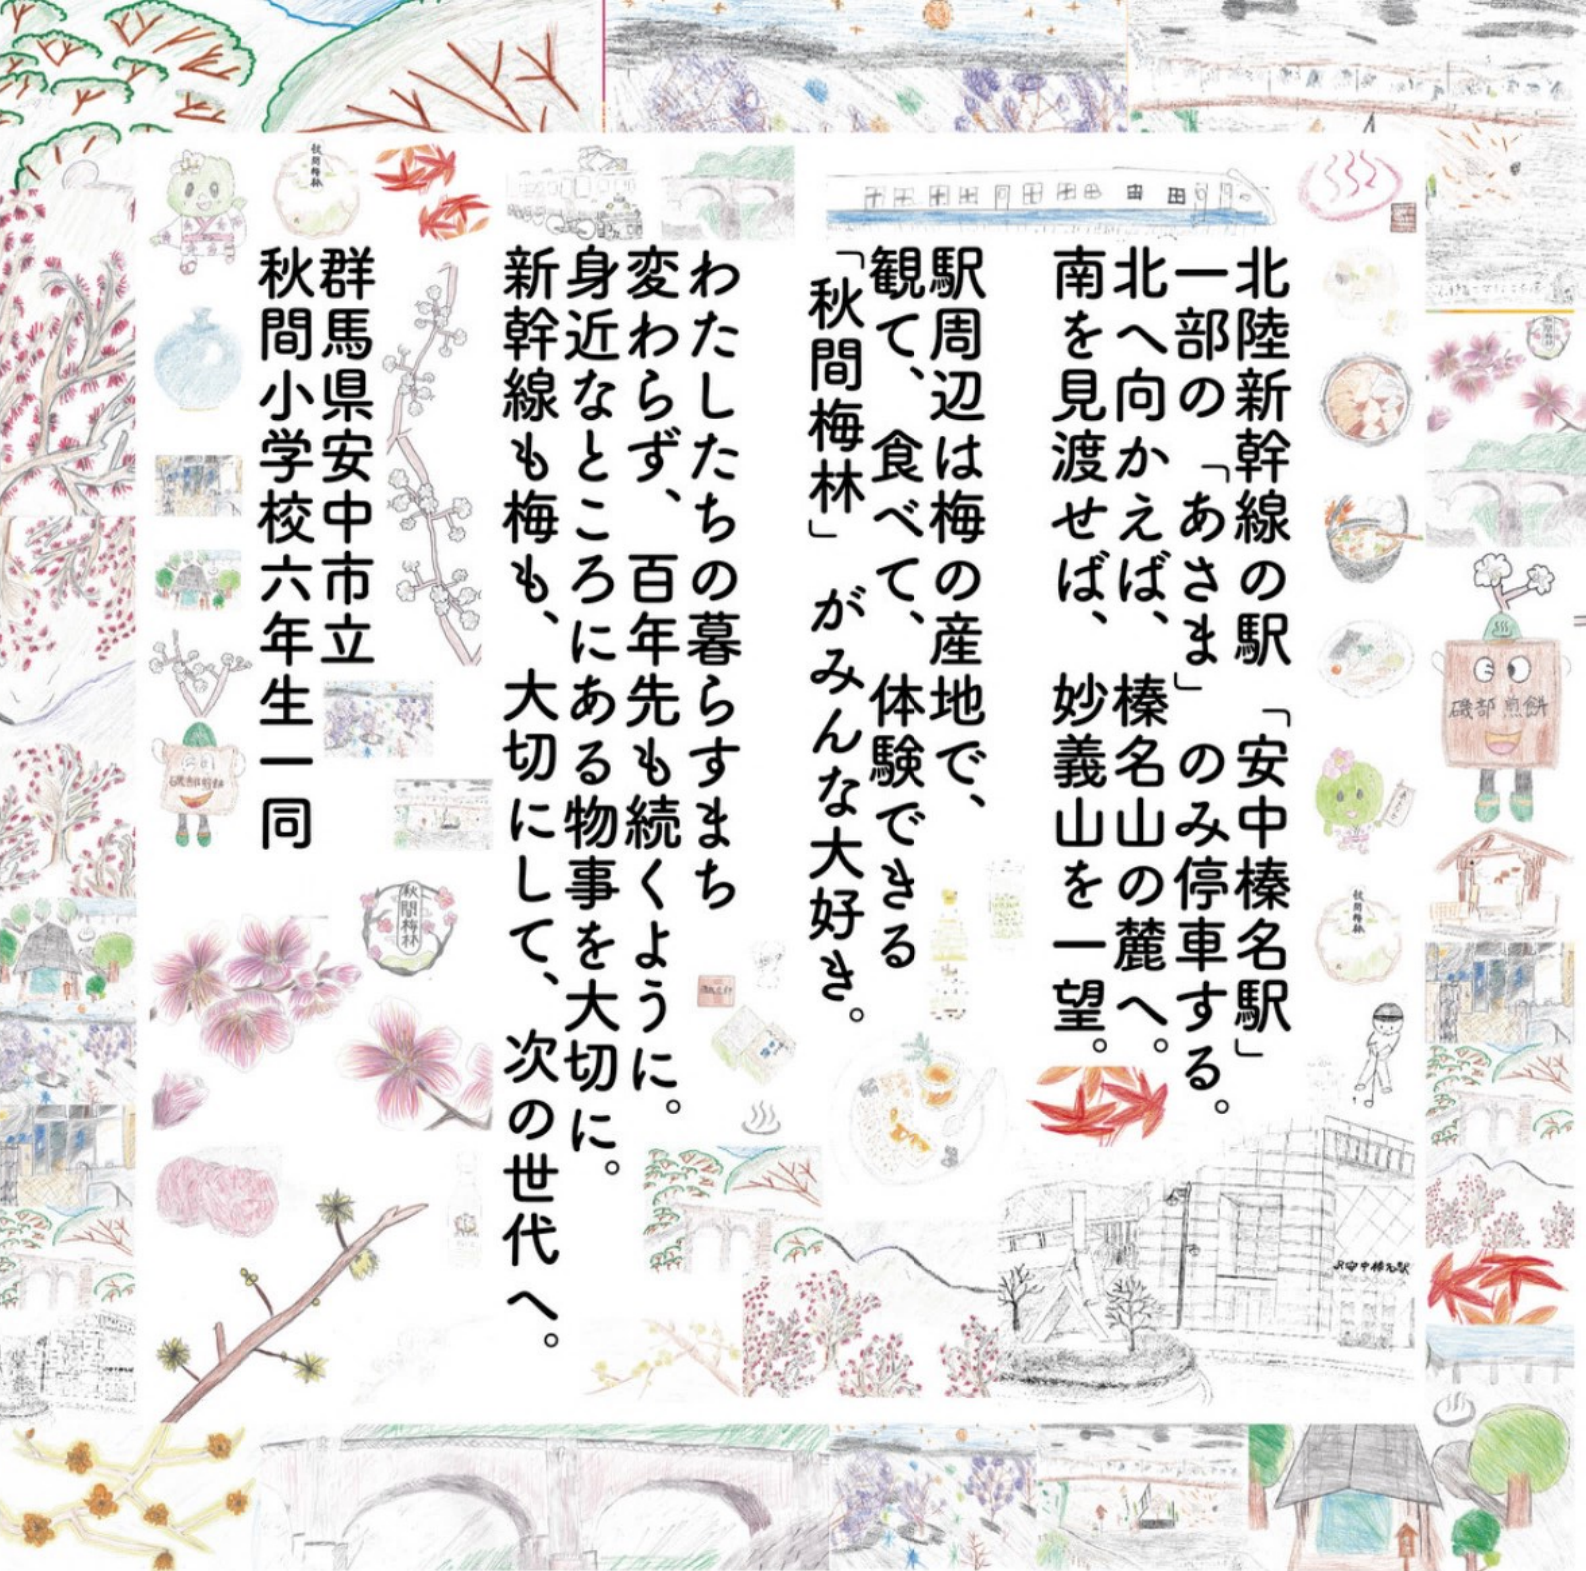 北陸新幹線の駅「安中榛名駅」
一部の「あさま」のみ停車する。
北へ向かえば、榛名山の麓へ。
南を見渡せば、妙義山を一望。
駅周辺は梅の産地で、
観て、食べて、体験できる
「秋間梅林」がみんな大好き。
わたしたちの暮らすまち
変わらず、百年先も続くように。
身近なところにある物事を大切に。
新幹線も梅も、大切にして、次の世代へ。
群馬県安中市立
秋間小学校六年生一同
秋間梅林
秋間梅林
秋間梅林
磯部煎餅
磯部煎餅
JR安中榛名駅